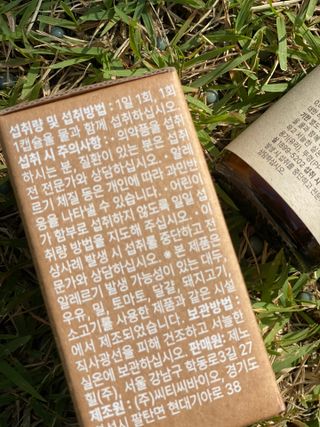 섭취량 및 섭취방법 : 1일 1회, 1회
1캡슐을 물과 함께 섭취하십시오.
섭취 시 주의사항 : · 의약품을 섭취
하시는 분, 질환이 있는 분은 섭취
전 전문가와 상담하십시오. · 알레
르기 체질 등은 개인에 따라 과민반
응을 나타낼 수 있습니다. · 어린이
가 함부로 섭취하지 않도록 일일 섭취
량 방법을 지도해 주십시오. · 이
상사례 발생 시 섭취를 중단하고 전
문가와 상담하십시오. * 본 제품은
알레르기 발생 가능성이 있는 대두,
우유, 밀, 토마토, 달걀, 돼지고기,
소고기를 사용한 제품과 같은 시설
에서 제조되었습니다. 보관방법 :
직사광선을 피해 건조하고 서늘한
실온에 보관하십시오. 판매원: 제노
힐(주), 서울 강남구 학동로3길 27
제조원 : (주)씨티씨바이오, 경기도
팔탄면 현대기아로 38